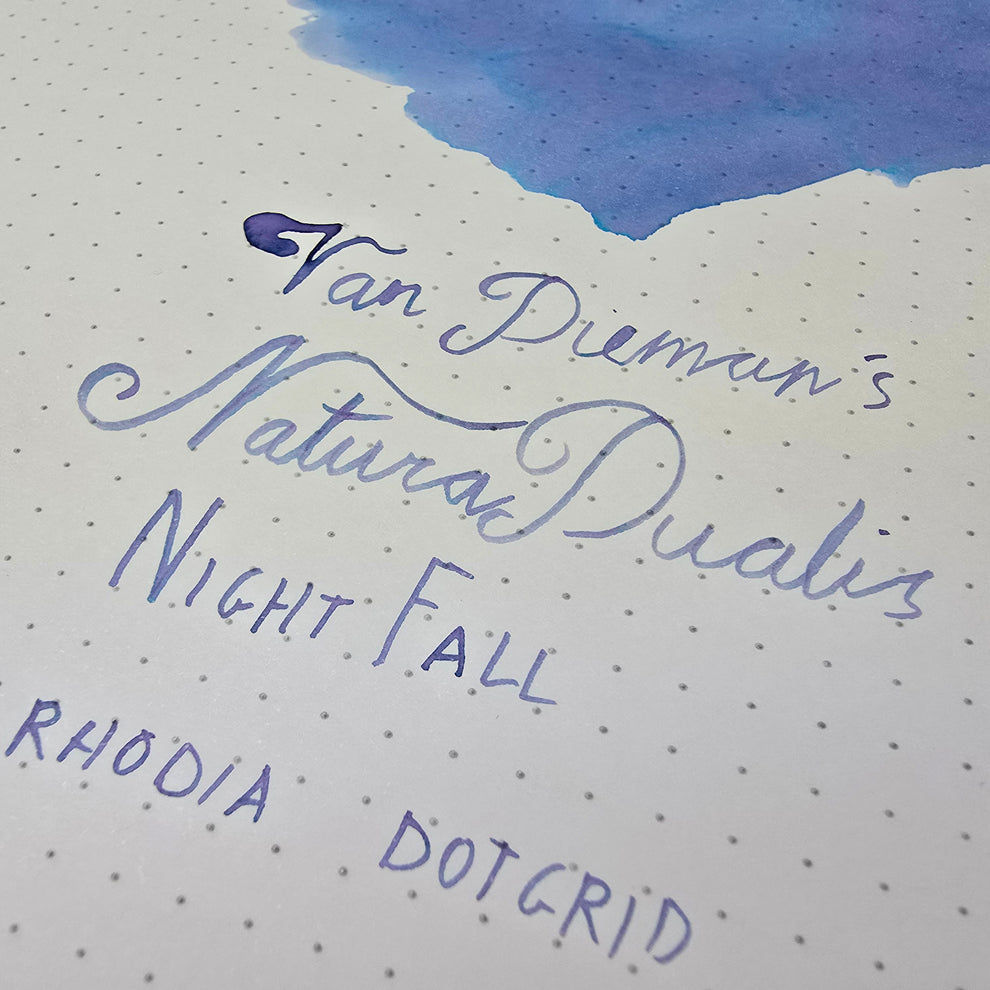 Van Dieman's
Natura Dualis
Night Fall
RHODIA DOTGRID